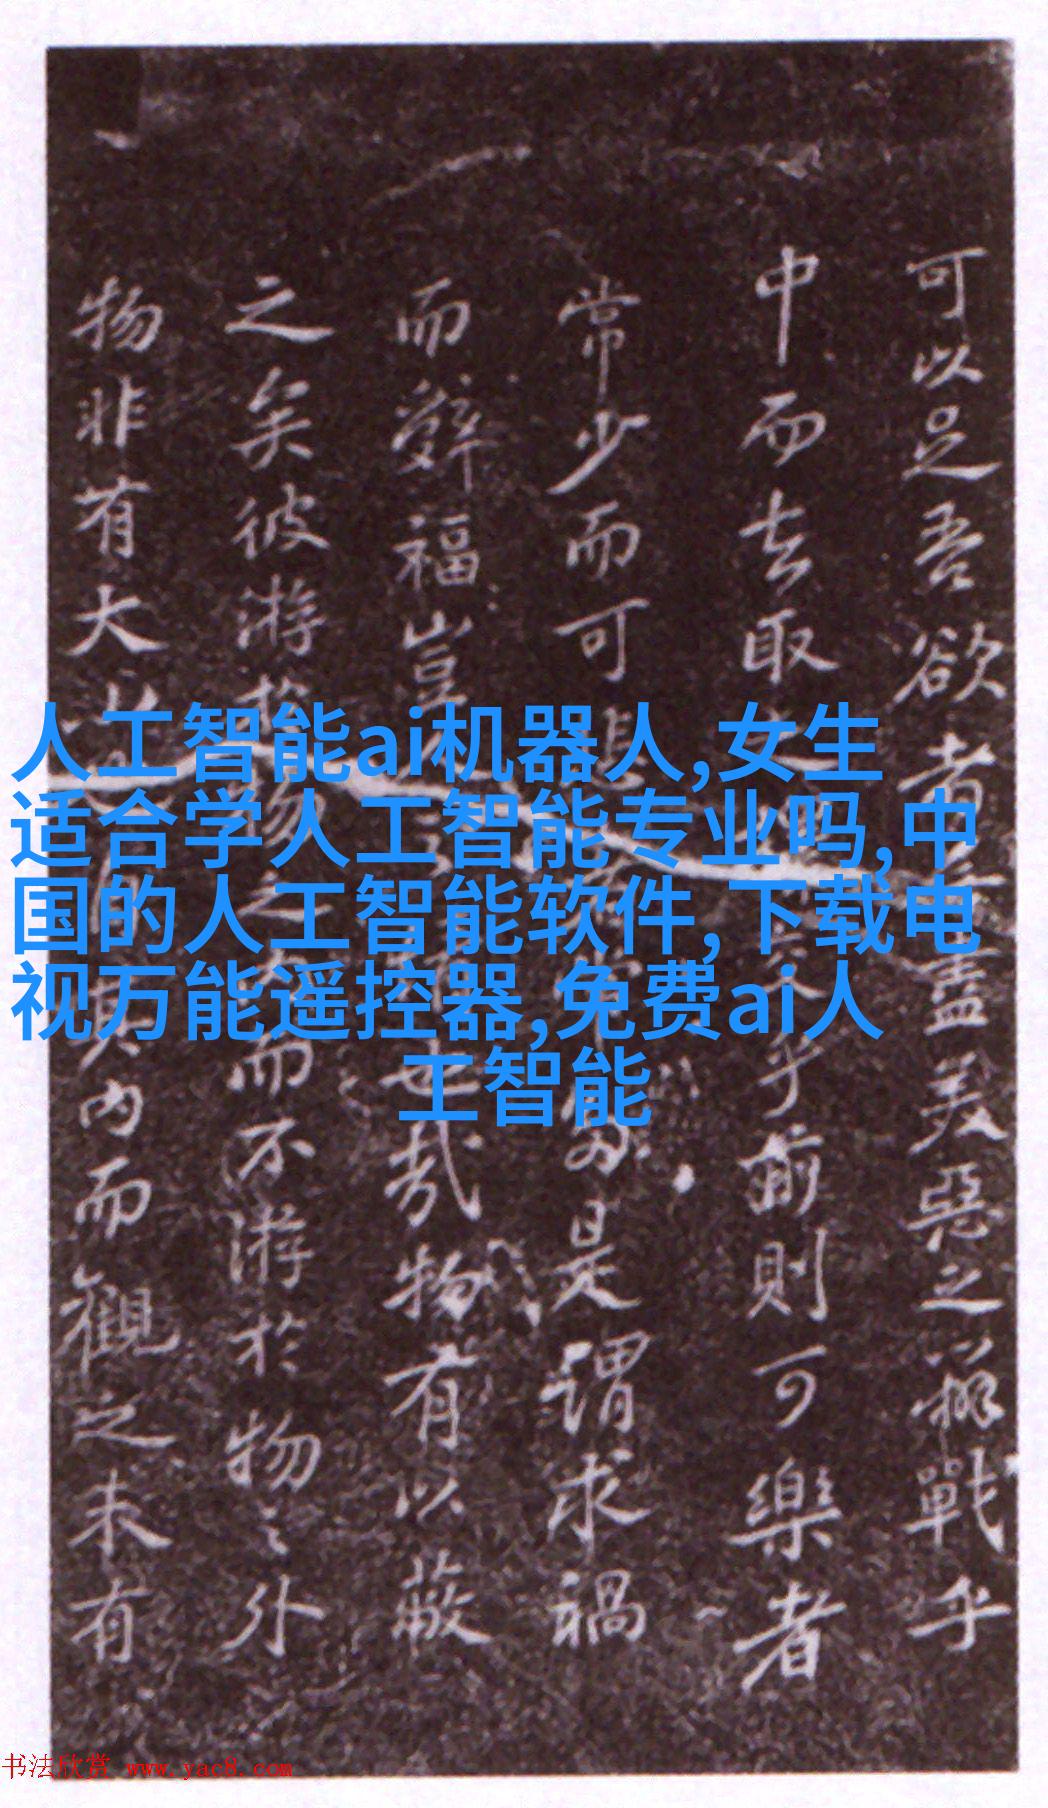 人工智能ai机器人,女生
适合学人工智能专业吗,中
国的人工智能软件,下载电
视万能遥控器,免费ai人
工智能
可以足吾欲者盡美惡之辨戰乎
中而去取乎前則可樂者
常少而可是謂求禍
而辭福豈哉物有以蔽
之矣彼游於物之而不游於物之外
物非有大内而觀之未有
书法欣赏 www.yac8.com